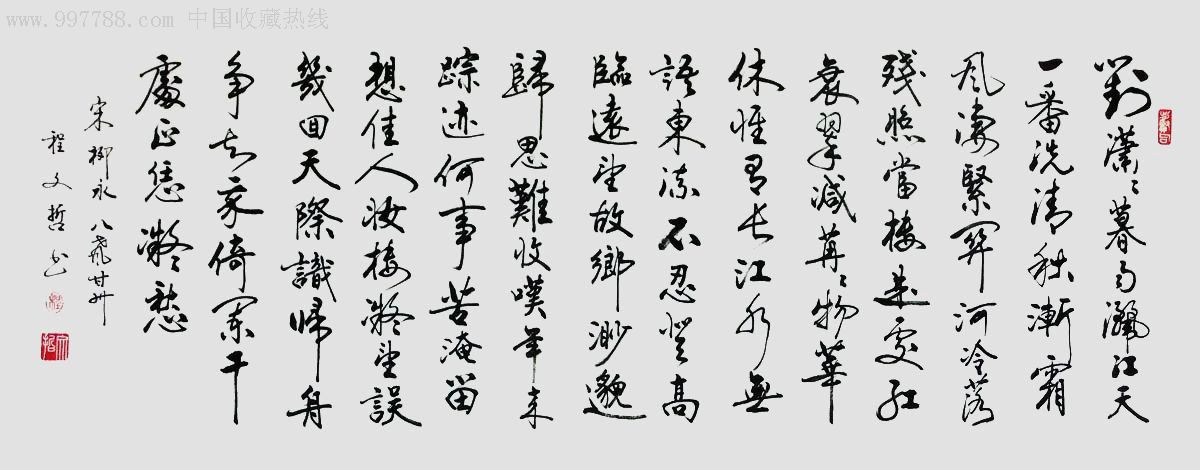 www.997788.com 中国收藏热线
對瀟瀟暮雨灑江天
一番洗清秋漸霜
風淒緊關河冷落
殘照當樓是處紅
衰翠減苒苒物華
休惟有長江水無
語東流不忍登高
臨遠望故鄉渺邈
歸思難收嘆年來
踪迹何事苦淹留
想佳人妝樓凝望誤
幾回天際識歸舟
爭知我倚闌干
處正恁凝愁
宋柳永八聲甘州
程文哲書